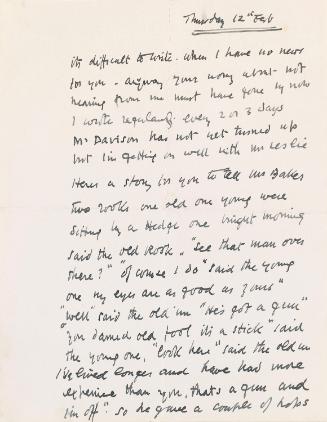 Thursday 12th Feb
its difficult to write when I have no news
for you - anyway your worry about not
hearing from me must have gone by now
I wrote regularly every 2 or 3 days
Mr Davison has not yet turned up
but I'm getting on well with Mr Leslie
Heres a story for you to tell Mrs Baker
two rooks one old one young were
sitting by a Hedge one bright morning
said the old Rook, "see that man over
there?" "of course I do" said the young
one my eyes are as good as yours"
"well" said the old'un "He's got a gun"
"you damned old fool its a stick" said
the young one, "look here" said the old'un
I've lived longer and have had more
experience than you, thats a gun and
I'm off". so he gave a couple of hops